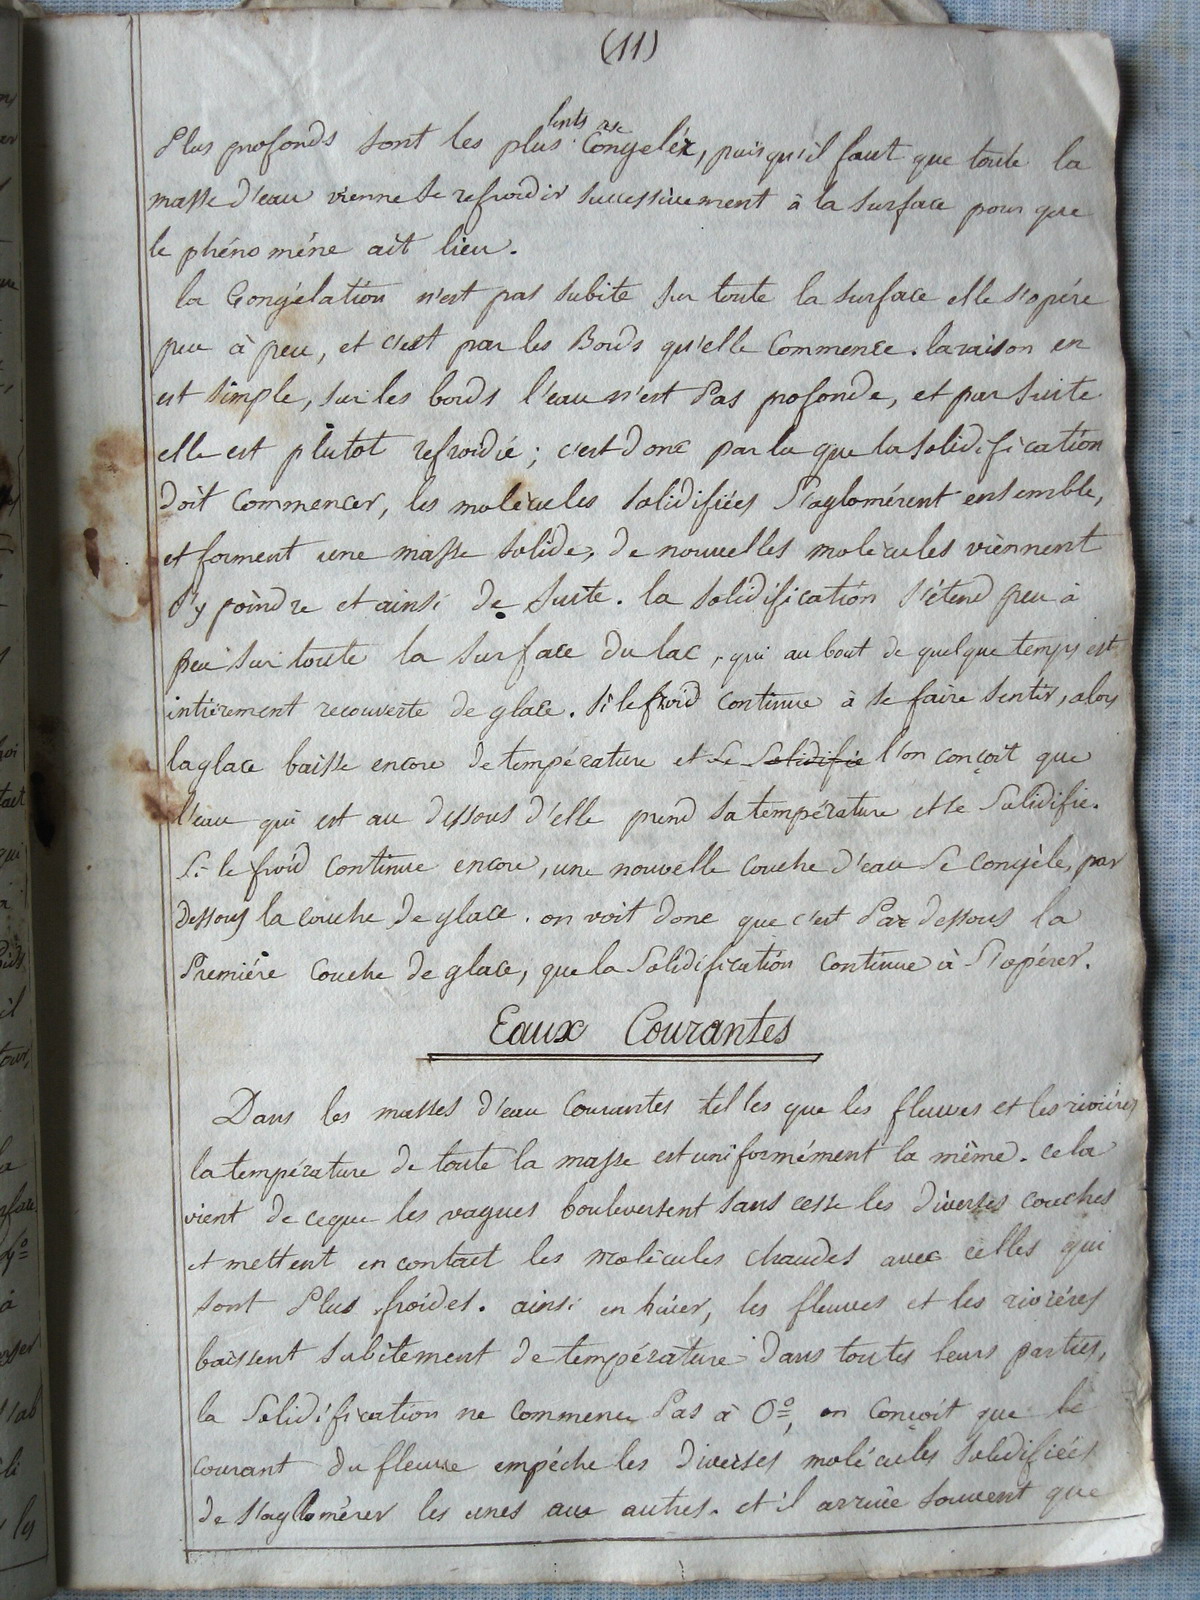 (11)
Plus profonds sont les plus lents à se Congeler, puisqu'il faut que toute la
masse d'eau vienne se refroidir successivement à la surface pour que
le phénoméne ait lieu.
la Congélation n'est pas subite sur toute la surface elle s'opére
peu à peu, et c'est par les Bords qu'elle Commence. la raison en
est simple, sur les bords l'eau n'est Pas profonde, et par suite
elle est plutot refroidie ; c'est donc par la que la solidification
doit Commencer, les molécules solidifiées s'aglomérent ensemble,
et forment une masse solide, de nouvelles molécules viennent
s'y joindre et ainsi de suite. la solidification s'étend peu à
peu sur toute la surface du lac, qui au bout de quelque temps est
intiérement recouverte de glace. si le froid continue à se faire sentir, alors
la glace baisse encore de température et se solidifie l'on conçoit que
l'eau qui est au dessous d'elle prend sa température et se Solidifie.
Si le froid continue encore, une nouvelle couche d'eau se congèle, par
dessous la couche de glace. on voit donc que c'est Par dessous la
Premiére Couche de glace, que la Solidification continue à s'opérer.
Eaux Courantes
Dans les masses d'eau Courantes telles que les fleuves et les riviéres
la température de toute la masse est uniformément la même. cela
vient de ceque les vagues bouleversent sans cesse les diverses couches
et mettent en contact les molécules chaudes avec celles qui
sont Plus froides. ainsi en hiver, les fleuves et les riviéres
baissent subitement de température dans toutes leurs parties,
la Solidification ne commence Pas à 0°, on Conçoit que le
courant du fleuve empéche les diverses molécules solidifiées
de s'aglomérer les unes aux autres. et il arrive souvent que